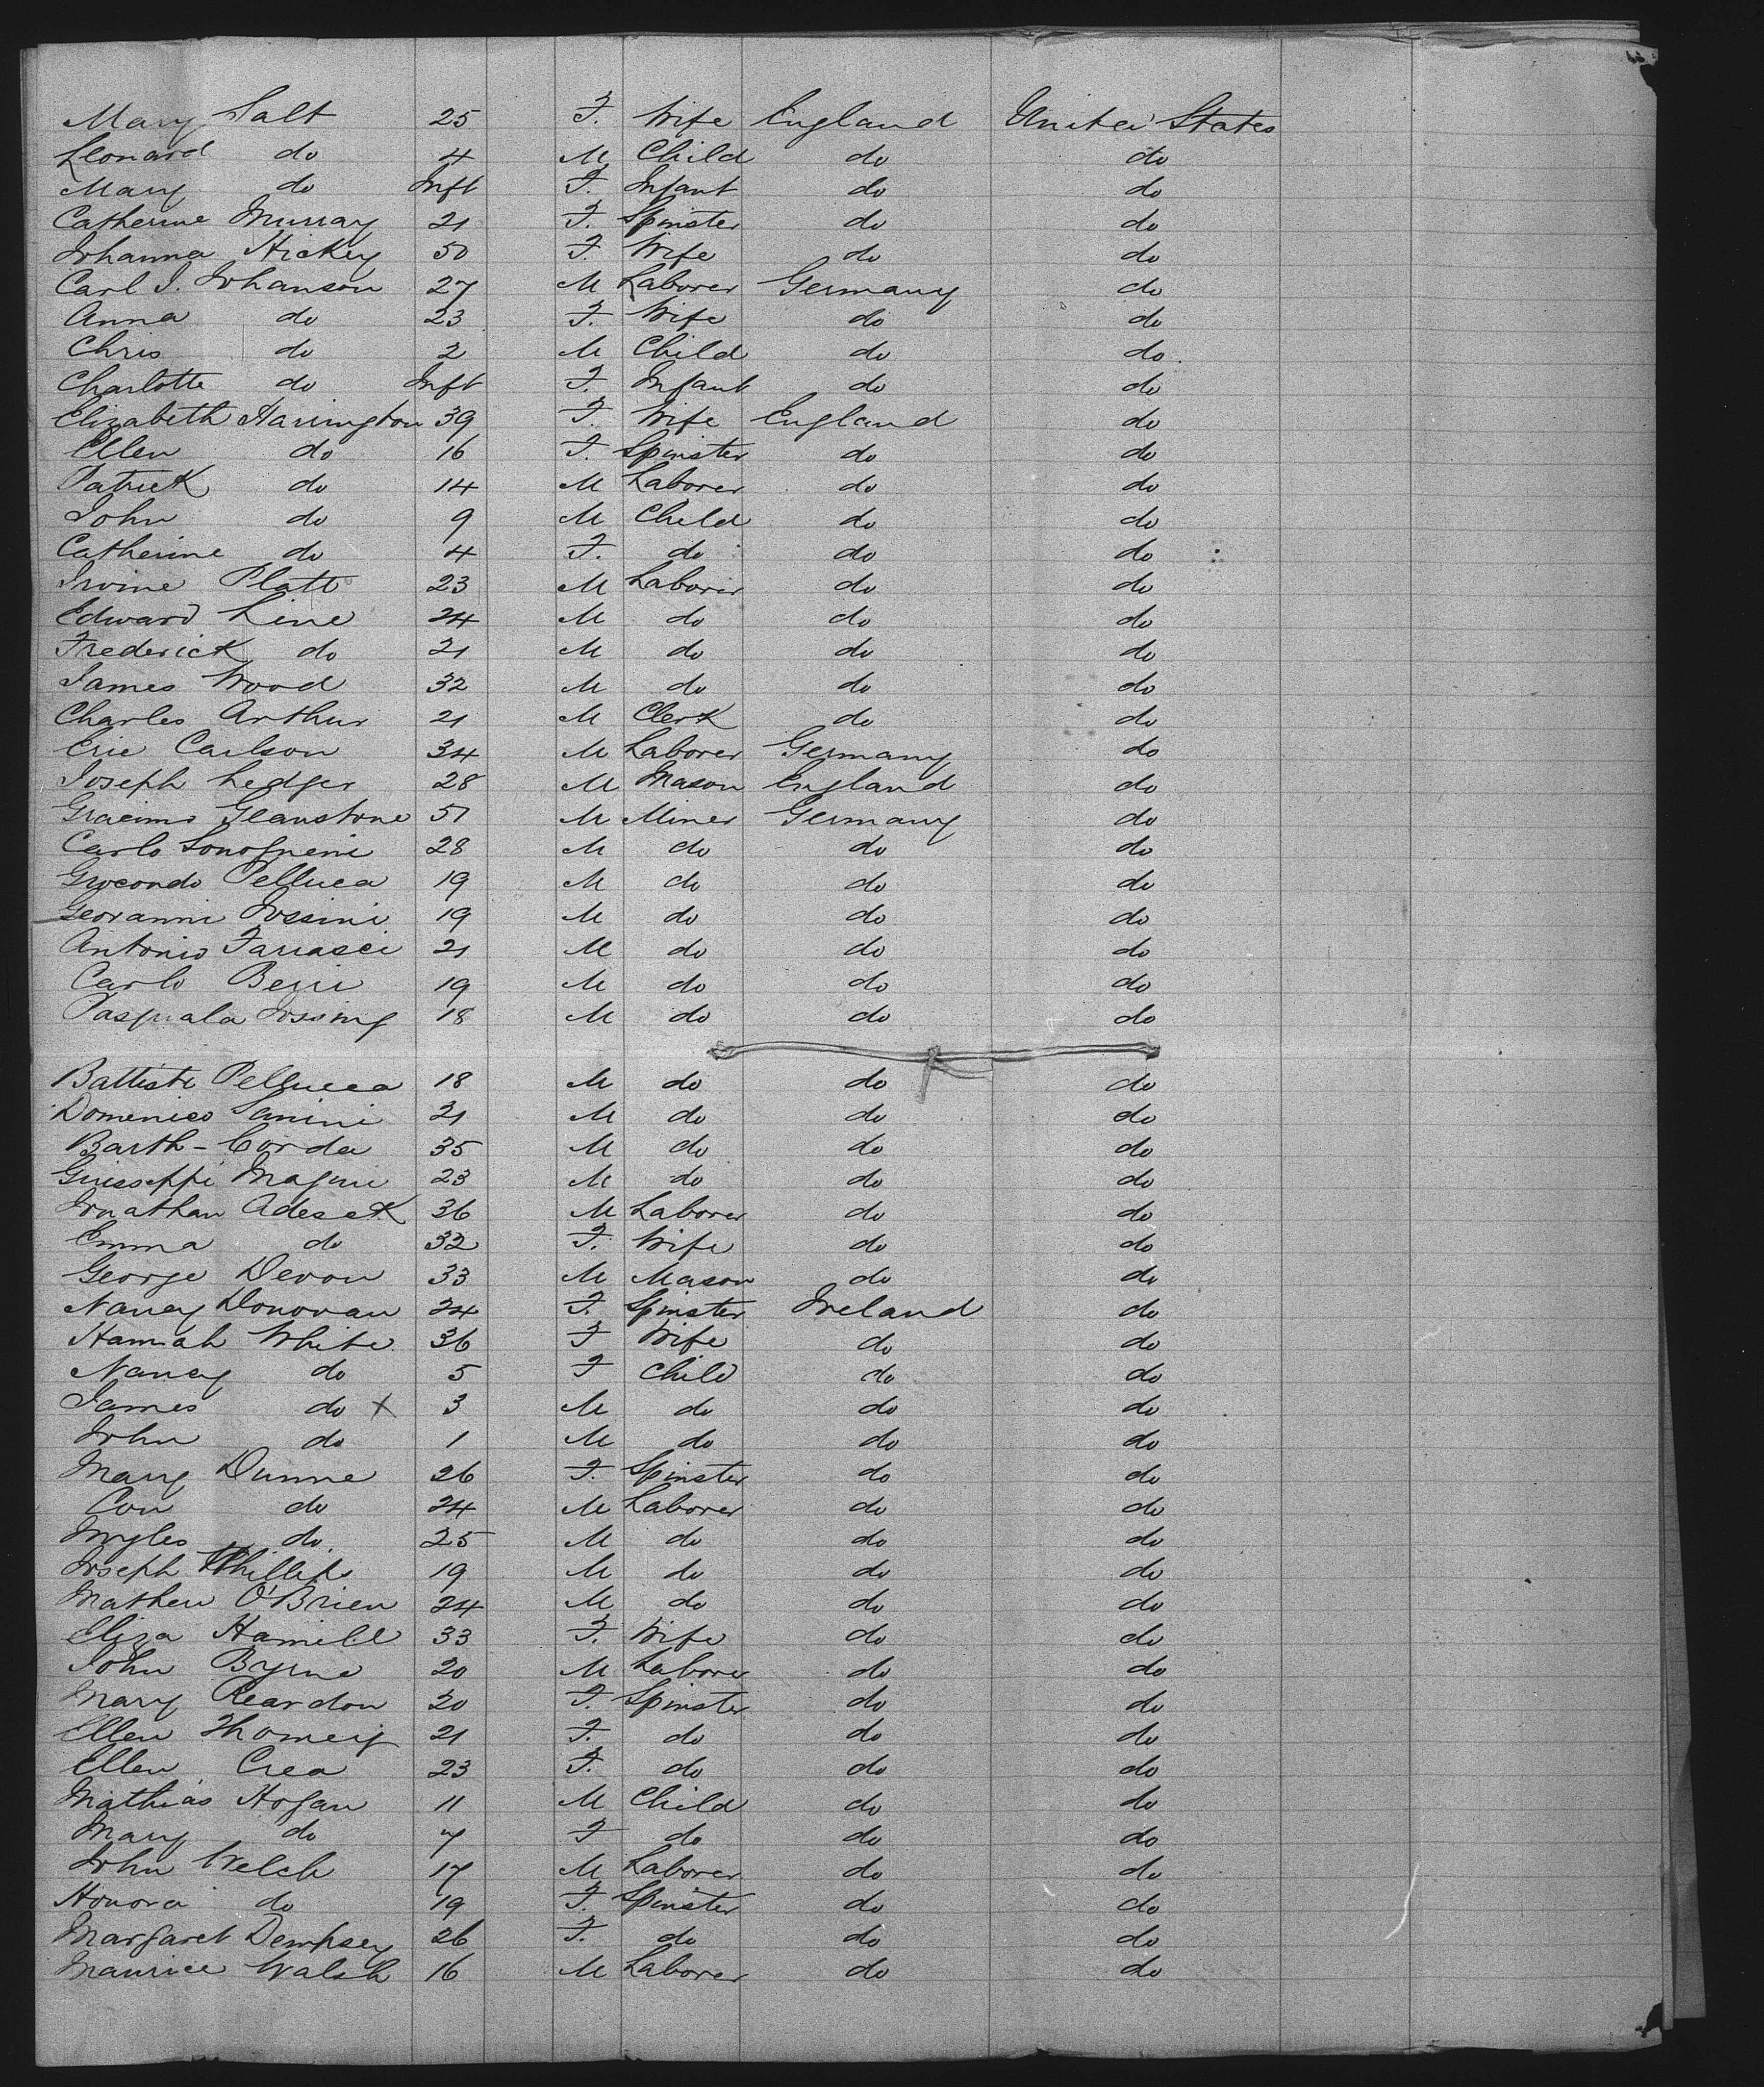 Mary Salt 25 F. Wife England United States
Leonard do 4 M Child do do
Mary do Inft F. Infant do do
Catherine Murray 21 F. Spinster do do
Johanna Hickey 50 F. Wife do do
Carl J. Johanson 27 M Laborer Germany do
Anna do 23 F. Wife do do
Chris do 2 M Child do do
Charlotte do Inft F. Infant do do
Elizabeth Harrington 39 F. Wife England do
Ellen do 16 F. Spinster do do
Patrick do 14 M Laborer do do
John do 9 M Child do do
Catherine do 4 F. do do do
Irvine Platt 23 M Laborer do do
Edward Line 24 M do do do
Frederick do 21 M do do do
James Wood 32 M do do do
Charles Arthur 21 M Clerk do do
Eric Carlson 34 M Laborer Germany do
Joseph Ledger 28 M Mason England do
Gianstone 51 M Miner Germany do
Carlo 28 M do do do
Giocondo Pelluca 19 M do do do
Geovanni Jossini 19 M do do do
Antonio Farrasci 21 M do do do
Carlo Berri 19 M do do do
Pasquala 18 M do do do
Battista Pellucca 18 M do do do
Domenico Sanini 21 M do do do
Barth- Corda 35 M do do do
Guisseppi Maguri 23 M do do do
Jonathan Adcock 36 M Laborer do do
Emma do 32 F. Wife do do
George Devon 33 M Mason do do
Nancy Donovan 24 F. Spinster Ireland do
Hannah White 36 F Wife do do
Nancy do 5 F Child do do
James do x 3 M do do do
John do 1 M do do do
Mary Dunne 26 F. Spinster do do
Con do 24 M Laborer do do
Myles do. 25 M do do do
Joseph Phillips 19 M do do do
Mathew O'Brien 24 M do do do
Eliza Hamill 33 F. Wife do do
John Byrne 20 M Laborer do do
Mary Reardon 20 F. Spinster do do
Ellen Twomey 21 F. do do do
Ellen Crea 23 F. do do do
Mathias Hogan 11 M Child do do
Mary do 7 F do do do
John Welch 17 M Laborer do do
Honora do 19 F. Spinster do do
Margaret Dempsey 26 F. do do do
Maurice Walsh 16 M Laborer do do